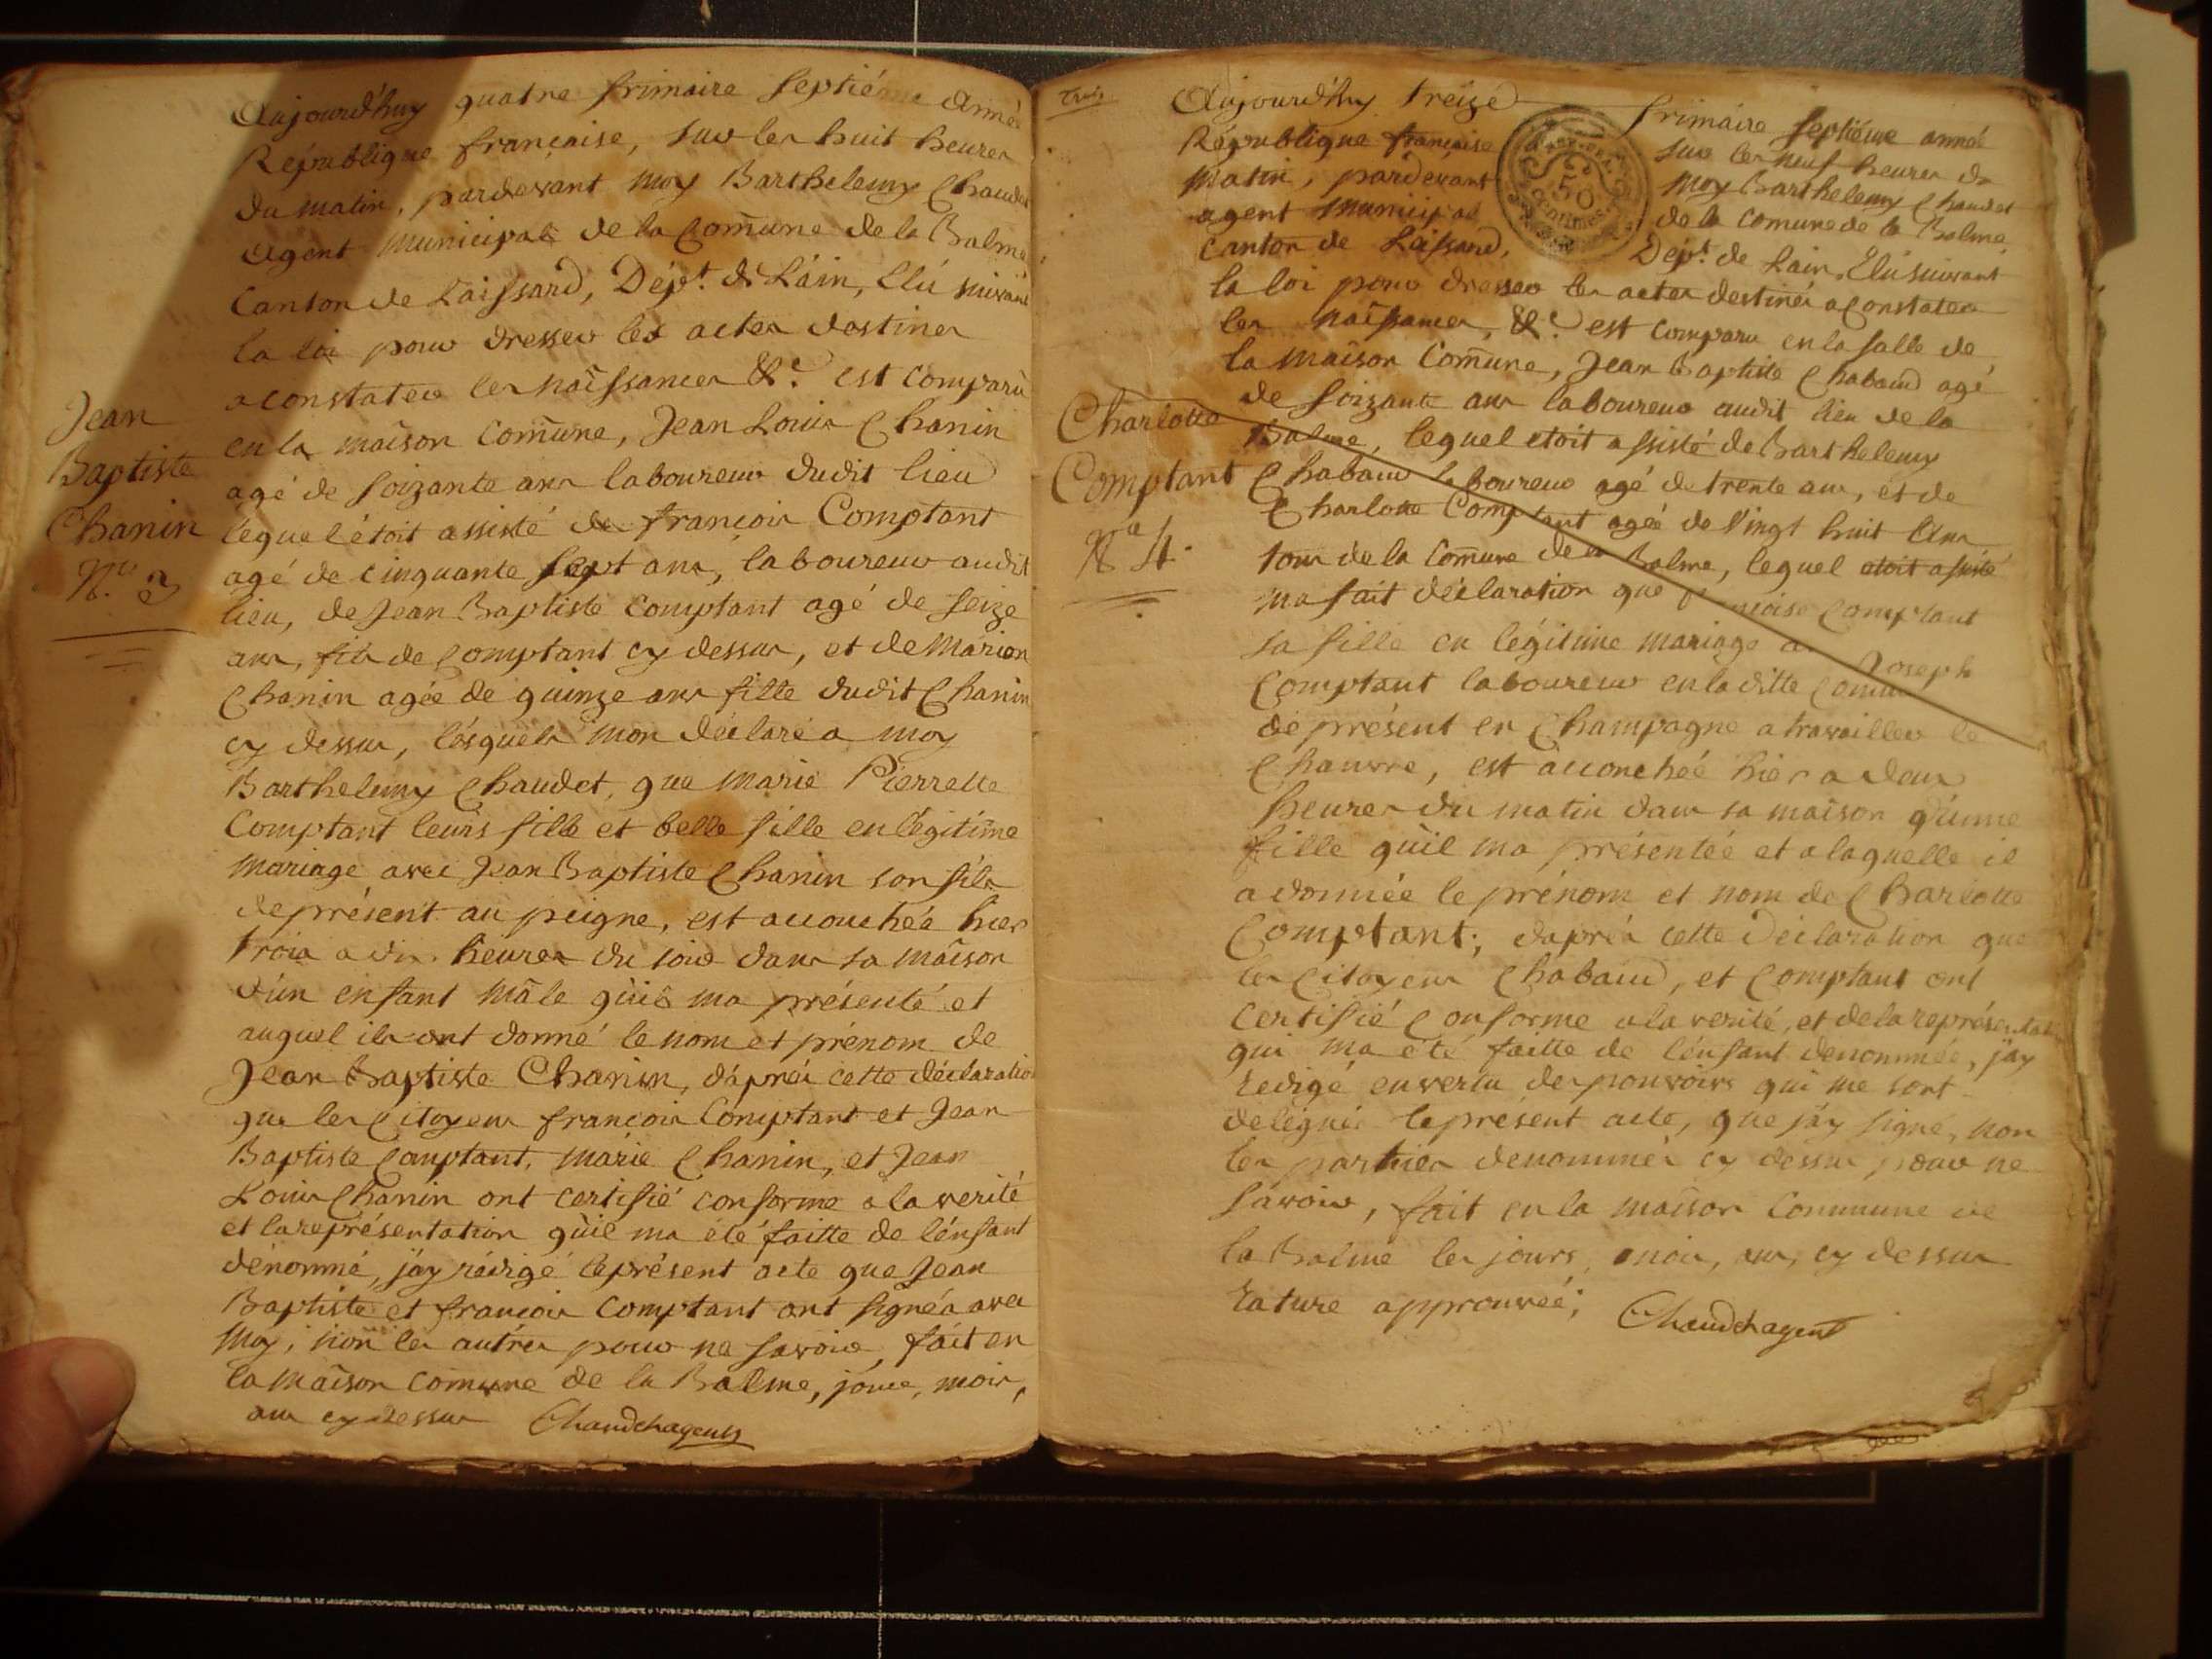 Aujourd'huy quatre frimaire septiéme année
République françaíse, sur les huit heures
du matin, pardevant moy Barthelemy Chaudet
agent municipal de la Comune de la Balme
Canton de Laissard, Dép.t de L'áin, Elú suivant
la loi pour dresser les actes destines
a constater les naissances &.c est comparu
en la maison Comune, Jean Louis Chanin
agé de soizante ans laboureur dudit lieu
lequel étoit assisté de françois Comptant
agé de cinquante sept ans, laboureur audit
lieu, de Jean Baptiste Comptant agé de seize
ans, fils de Comptant cy dessus, et de Marion
Chanin agée de quinze ans fille dudit Chanin
cy dessus, lésquels mon déclaré a moy
Barthelemy Chaudet, que marie Pierrette
Comptant leurs fille et belle fille en légitime
mariage avec Jean Baptiste Chanin son fils
de présent au peigne, est accouchée hier
trois a dix heures du soir dans sa maison
d'ún enfant mâle qúil ma présenté et
auquel ils ont donné le nom et prénom de
Jean Baptiste Chanin, dáprés cette déclaration
que les Citoyens françois Comptant et Jean
Baptiste Comptant, marie Chanin, et Jean
Louis Chanin ont certifié conforme a la verité
et la représentation qúil ma été faitte de lénfant
dénommé, jáy rédigé le présent acte que Jean
Baptiste et françois Comptant ont signés avec
moy, non les autres pour ne savoir, fait en
la maison Comune de la Balme, jour, mois,
ans cy dessus Chaudet agent
Jean
Baptiste
Chanin
N.o 3
Trois
Aujourd'huy treize frimaire septiéme année
République française sur les neuf heures du
matin, pardevant moy Barthelemy Chaudet
agent municipal de la Comune de la Balme,
Canton de Laissard, Dép.t de Lain, Elú suivant
la loi pour dresser les actes destinés a constater
les naissances, &.c est comparu en la salle de
la maison Comune, Jean Baptiste Chabaud agé
de soizante ans laboureur audit lieu de la
Balme, lequel etoit assisté de Barthelemy
Chabaud laboureur agé de trente ans, et de
Charlotte Comptant agée de vingt huit ans
tous de la Comune de la Balme, lequel etoit assisté
ma fait déclaration que françoise Comptant
sa fille en légitime mariage a Joseph
Comptant laboureur en la ditte Comune
de présent en Champagne a travailler le
Chanvre, est accouchée hier a deux
heures du matin dans sa maison d'une
fille qúil ma présentée et a laquelle il
a donnée le prénom et nom de Charlotte
Comptant; daprés cette déclaration que
les Citoyens Chabaud, et Comptant ont
certifié Conforme a la verité, et de la représentation
qui ma été faitte de lénfant denommée, jáy
redigé en vertu des pouvoirs qui me sont
delégués le présent acte, que jáy signé, non
les partties denommés cy dessus pour ne
savoir, fait en la maison Commune de
la Balme les jours, mois, ans, cy dessus
rature approuvée; Chaudet agent
Charlotte
Comptant
N.o 4.
50
Centimes